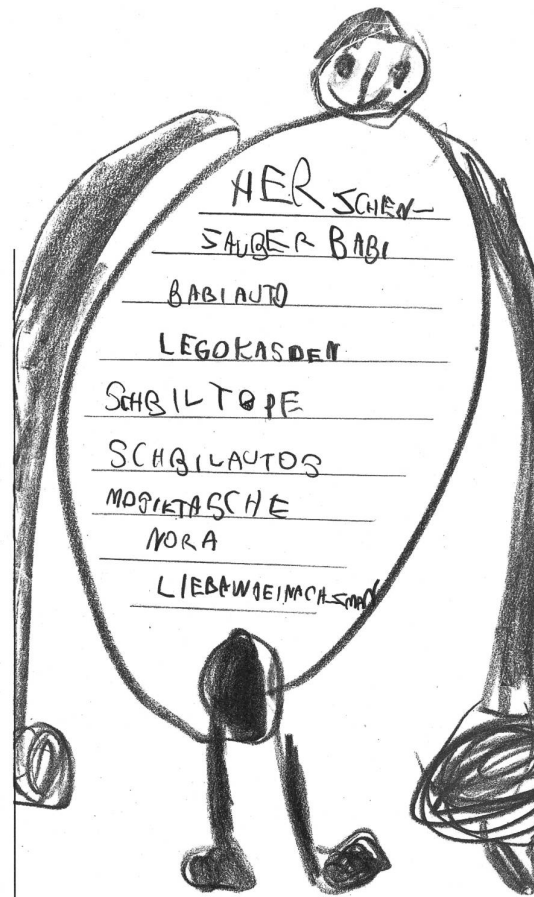 HER SCHEN-
SAUBER BABI
BABIAUTO
LEGOKASDEN
SCHBILTOPE
SCHBILAUTOS
MOSIKTASCHE
NORA
LIEBAWOEINACHSMAN